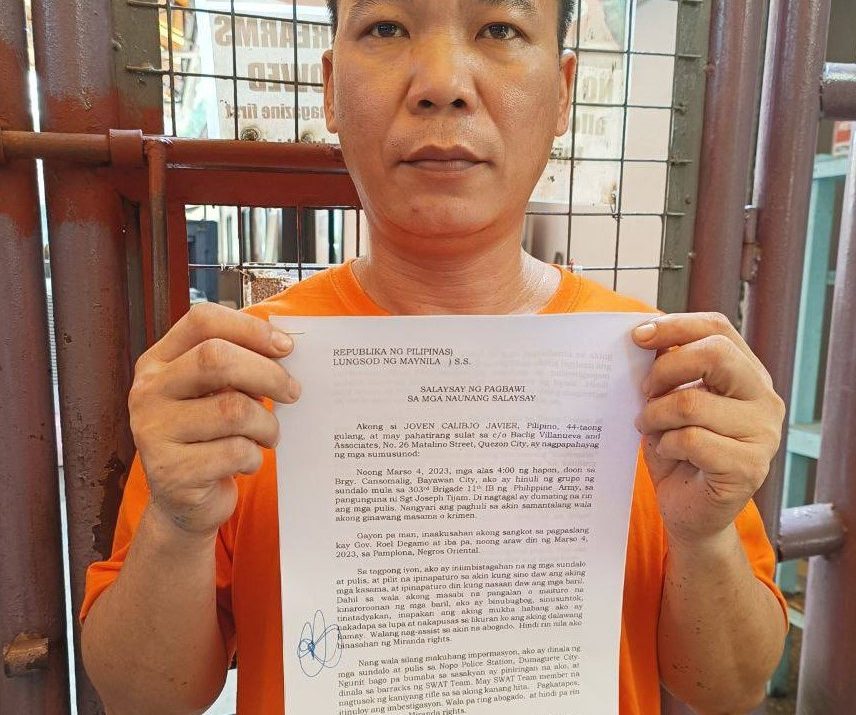 magazine first
REPUBLIKA NG PILIPINAS)
LUNGSOD NG MAYNILA ) S.S.
SALAYSAY NG PAGBAWI
SA MGA NAUNANG SALAYSAY
Akong si JOVEN CALIBJO JAVIER, Pilipino, 44-taong
gulang, at may pahatirang sulat sa c/o Baclig Villanueva and
Associates, No. 26 Matalino Street, Quezon City, ay nagpapahayag
ng mga sumusunod:
Noong Marso 4, 2023, mga alas 4:00 ng hapon, doon sa
Brgy. Cansomalig, Bayawan City, ako ay hinuli ng grupo ng
sundalo mula sa 303rd Brigade 11th IB ng Philippine Army, sa
pangunguna ni Sgt Joseph Tijam. Di nagtagal ay dumating na rin
ang mga pulis. Nangyari ang paghuli sa akin samantalang wala
akong ginawang masama o krimen.
Gayon pa man, inaakusahan akong sangkot sa pagpaslang
kay Gov. Roel Degamo at iba pa, noong araw din ng Marso 4,
2023, sa Pamplona, Negros Oriental.
Sa tagpong iyon, ako ay iniimbistagahan na ng mga sundalo
at pulis, at pilit na ipinapaturo sa akin kung sino daw ang aking
mga kasama, at ipinapaturo din kung nasaan daw ang mga baril.
Dahil sa wala akong masabi na pangalan o maituro na
kinaroroonan ng mga baril, ako ay binubugbog, sinusuntok,
tinatadyakan, inapakan ang aking mukha habang ako ay
nakadapa sa lupa at nakaposas sa likuran ko ang aking dalawang
kamay. Walang nag-assist sa akin na abogado. Hindi rin nila ako
binasahan ng Miranda rights.
Nang wala silang makuhang impermasyon, ako ay dinala ng
mga sundalo at pulis sa Nopo Police Station, Dumaguete City.
Ngunit bago pa bumaba sa sasakyan ay piniringan na ako, at
dinala sa barracks ng SWAT Team. May SWAT Team member na
nagtusok ng kaniyang rifle sa sa aking kanang hita. Pagkatapos,
itinuloy ang imbestigasyon. Wala pa ring abogado, at hindi pa rin
Miranda rights.